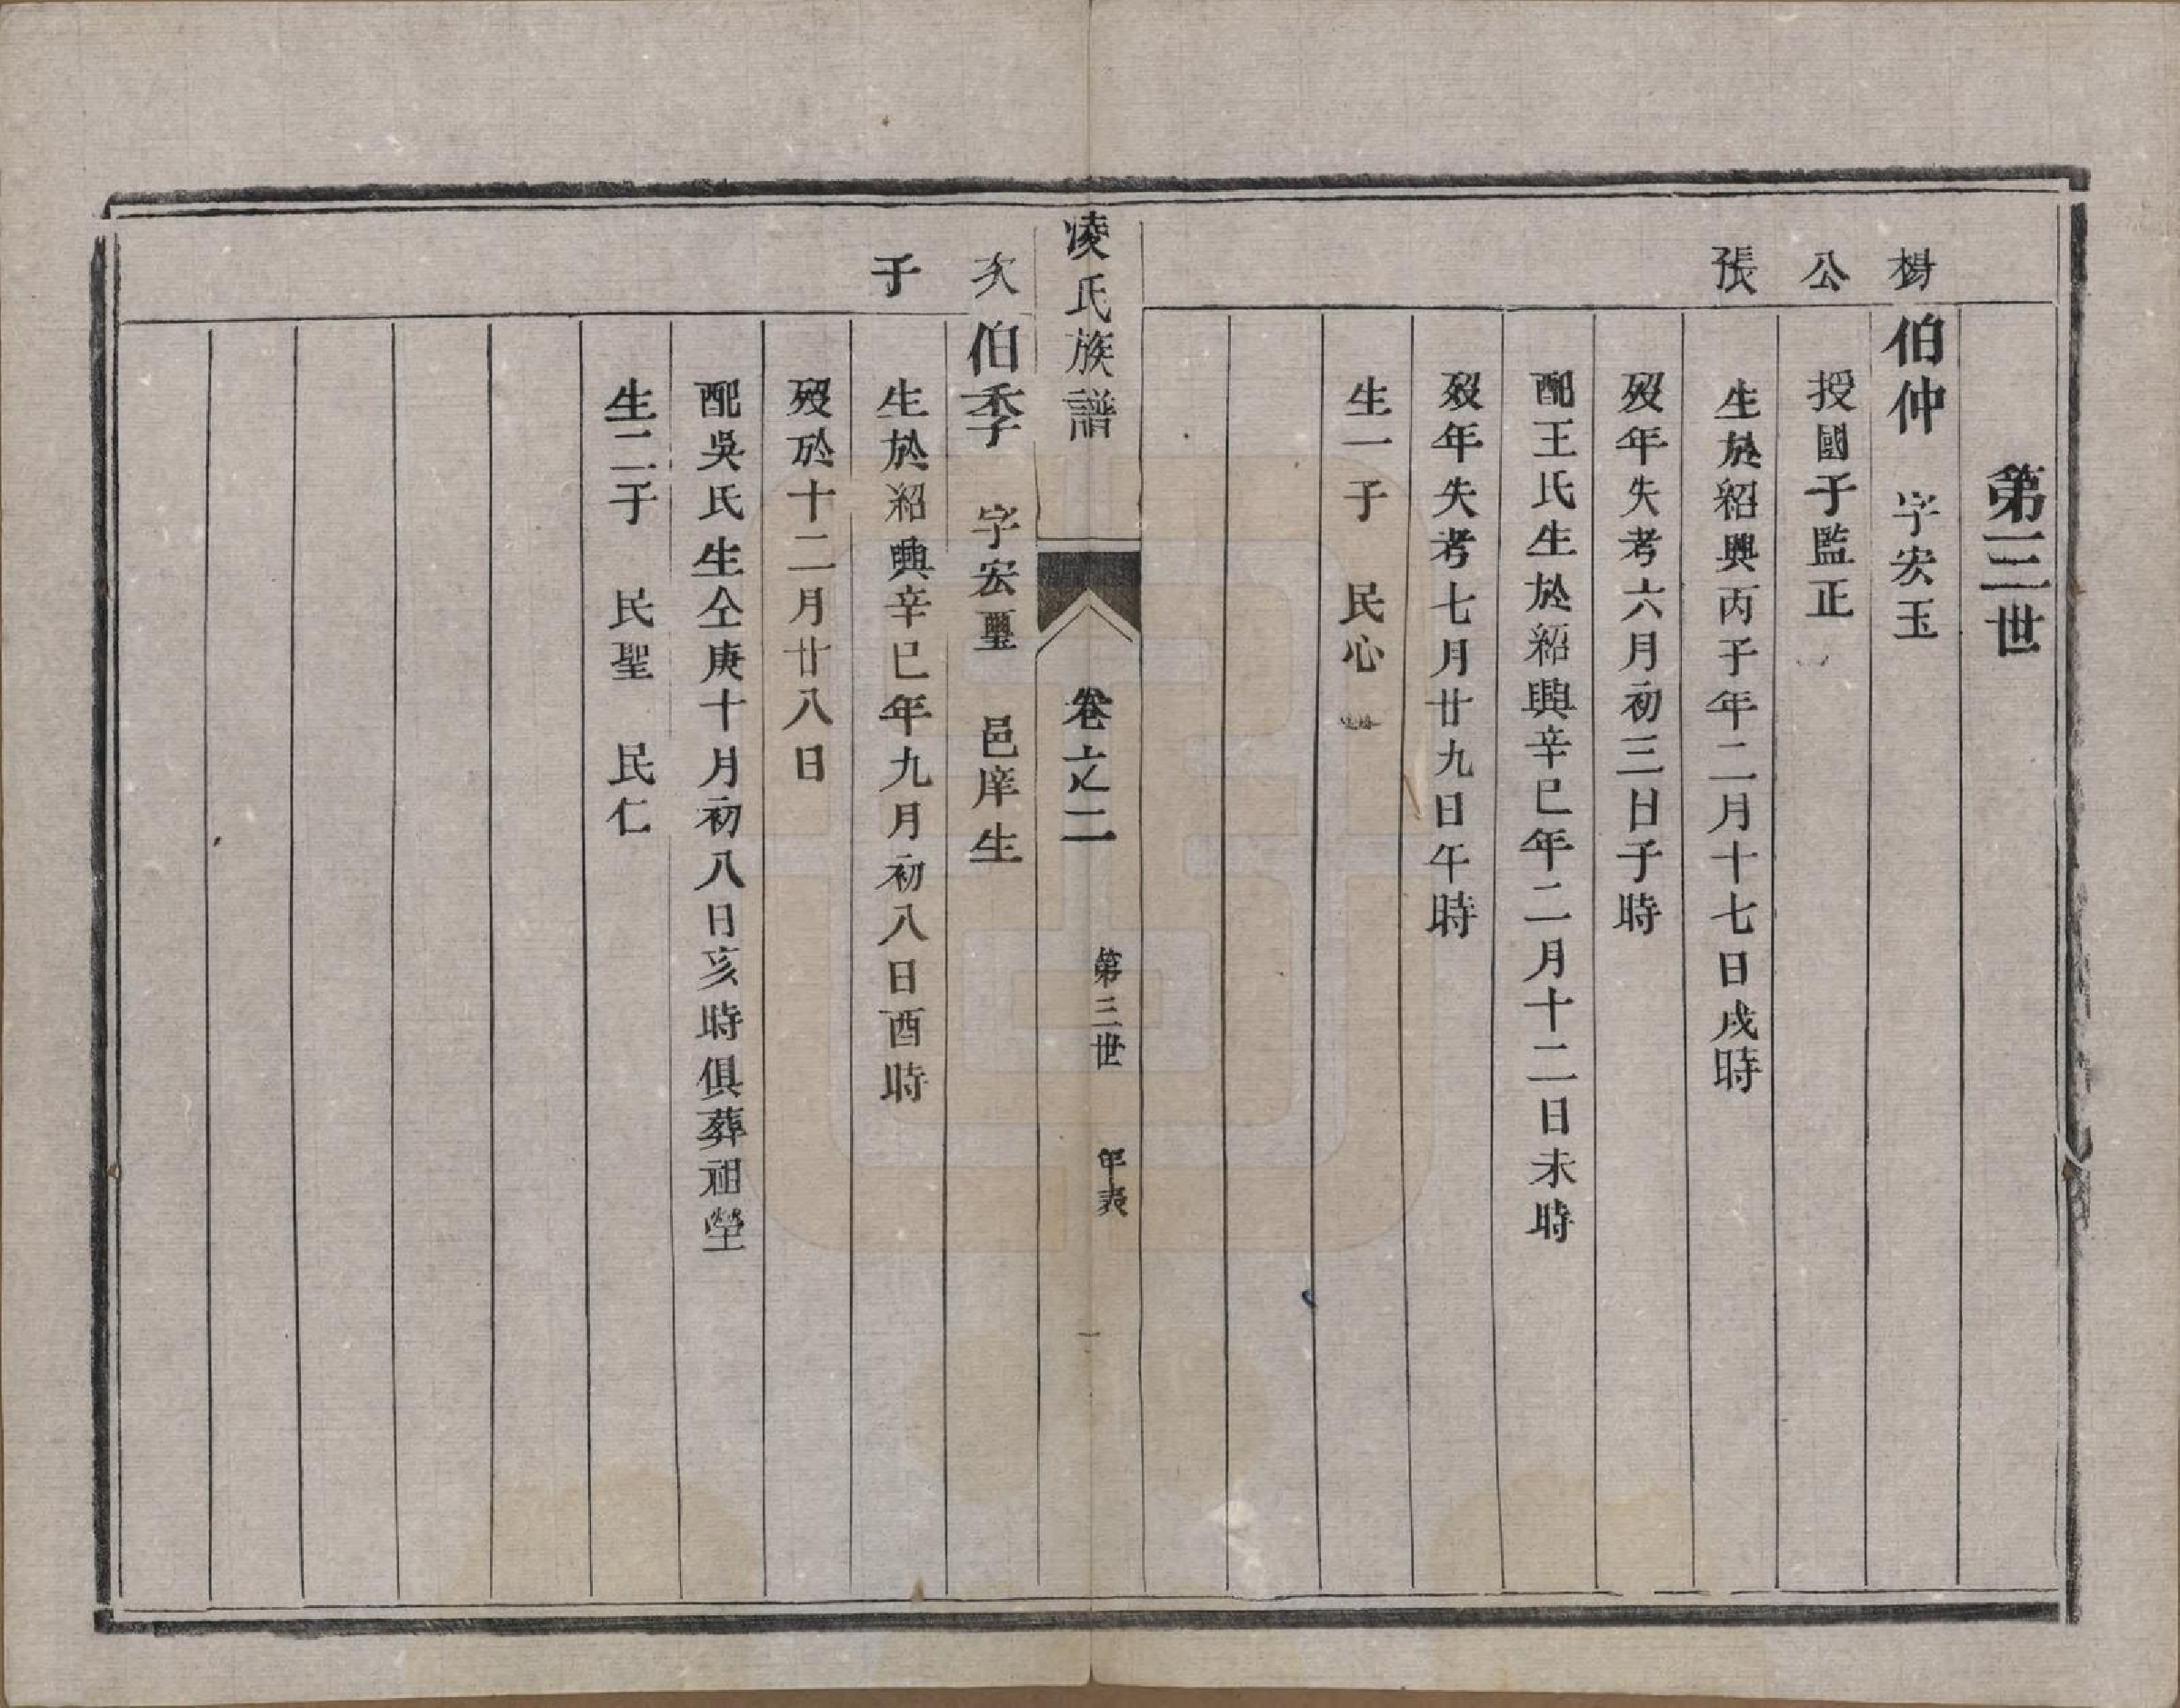 第三世
楊公張
伯仲 字宏玉
授國子監正
生於紹興丙子年二月十七日戌時
歿年失考六月初三日子時
配王氏生於紹興辛巳年二月十二日未時
歿年失考七月廿九日午時
生一子 民心
凌氏族譜 卷之二 第三世 年表 一
次子
伯季 字宏璽 邑庠生
生於紹興辛巳年九月初八日酉時
歿於十二月廿八日
配吳氏生仝庚十月初八日亥時俱葬祖塋
生二子 民聖 民仁